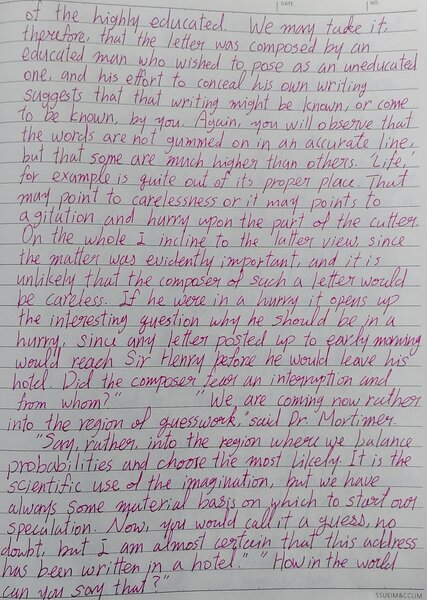 DATE
NO.
of the highly educated. We may take it,
therefore, that the letter was composed by an
educated man who wished to pose as an uneducated
one, and his effort to conceal his own writing
suggests that that writing might be known, or come
to be known, by you. Again, you will observe that
the words are not gummed on in an accurate line,
but that some are much higher than others. 'Life,'
for example is quite out of its proper place. That
may point to carelessness or it may points to
agitation and hurry upon the part of the cutter.
On the whole I incline to the latter view, since
the matter was evidently important, and it is
unlikely that the composer of such a letter would
be careless. If he were in a hurry it opens up
the interesting question why he should be in a
hurry, since any letter posted up to early morning
would reach Sir Henry before he would leave his
hotel. Did the composer fear an interruption and
from whom?" "We are coming now rather
into the region of guesswork," said Dr. Mortimer.
"Say, rather, into the region where we balance
probabilities and choose the most likely. It is the
scientific use of the imagination, but we have
always some material basis on which to start our
speculation. Now, you would call it a guess, no
doubt, but I am almost certain that this address
has been written in a hotel." "How in the world
can you say that?"
SSUEIM&CCLIM